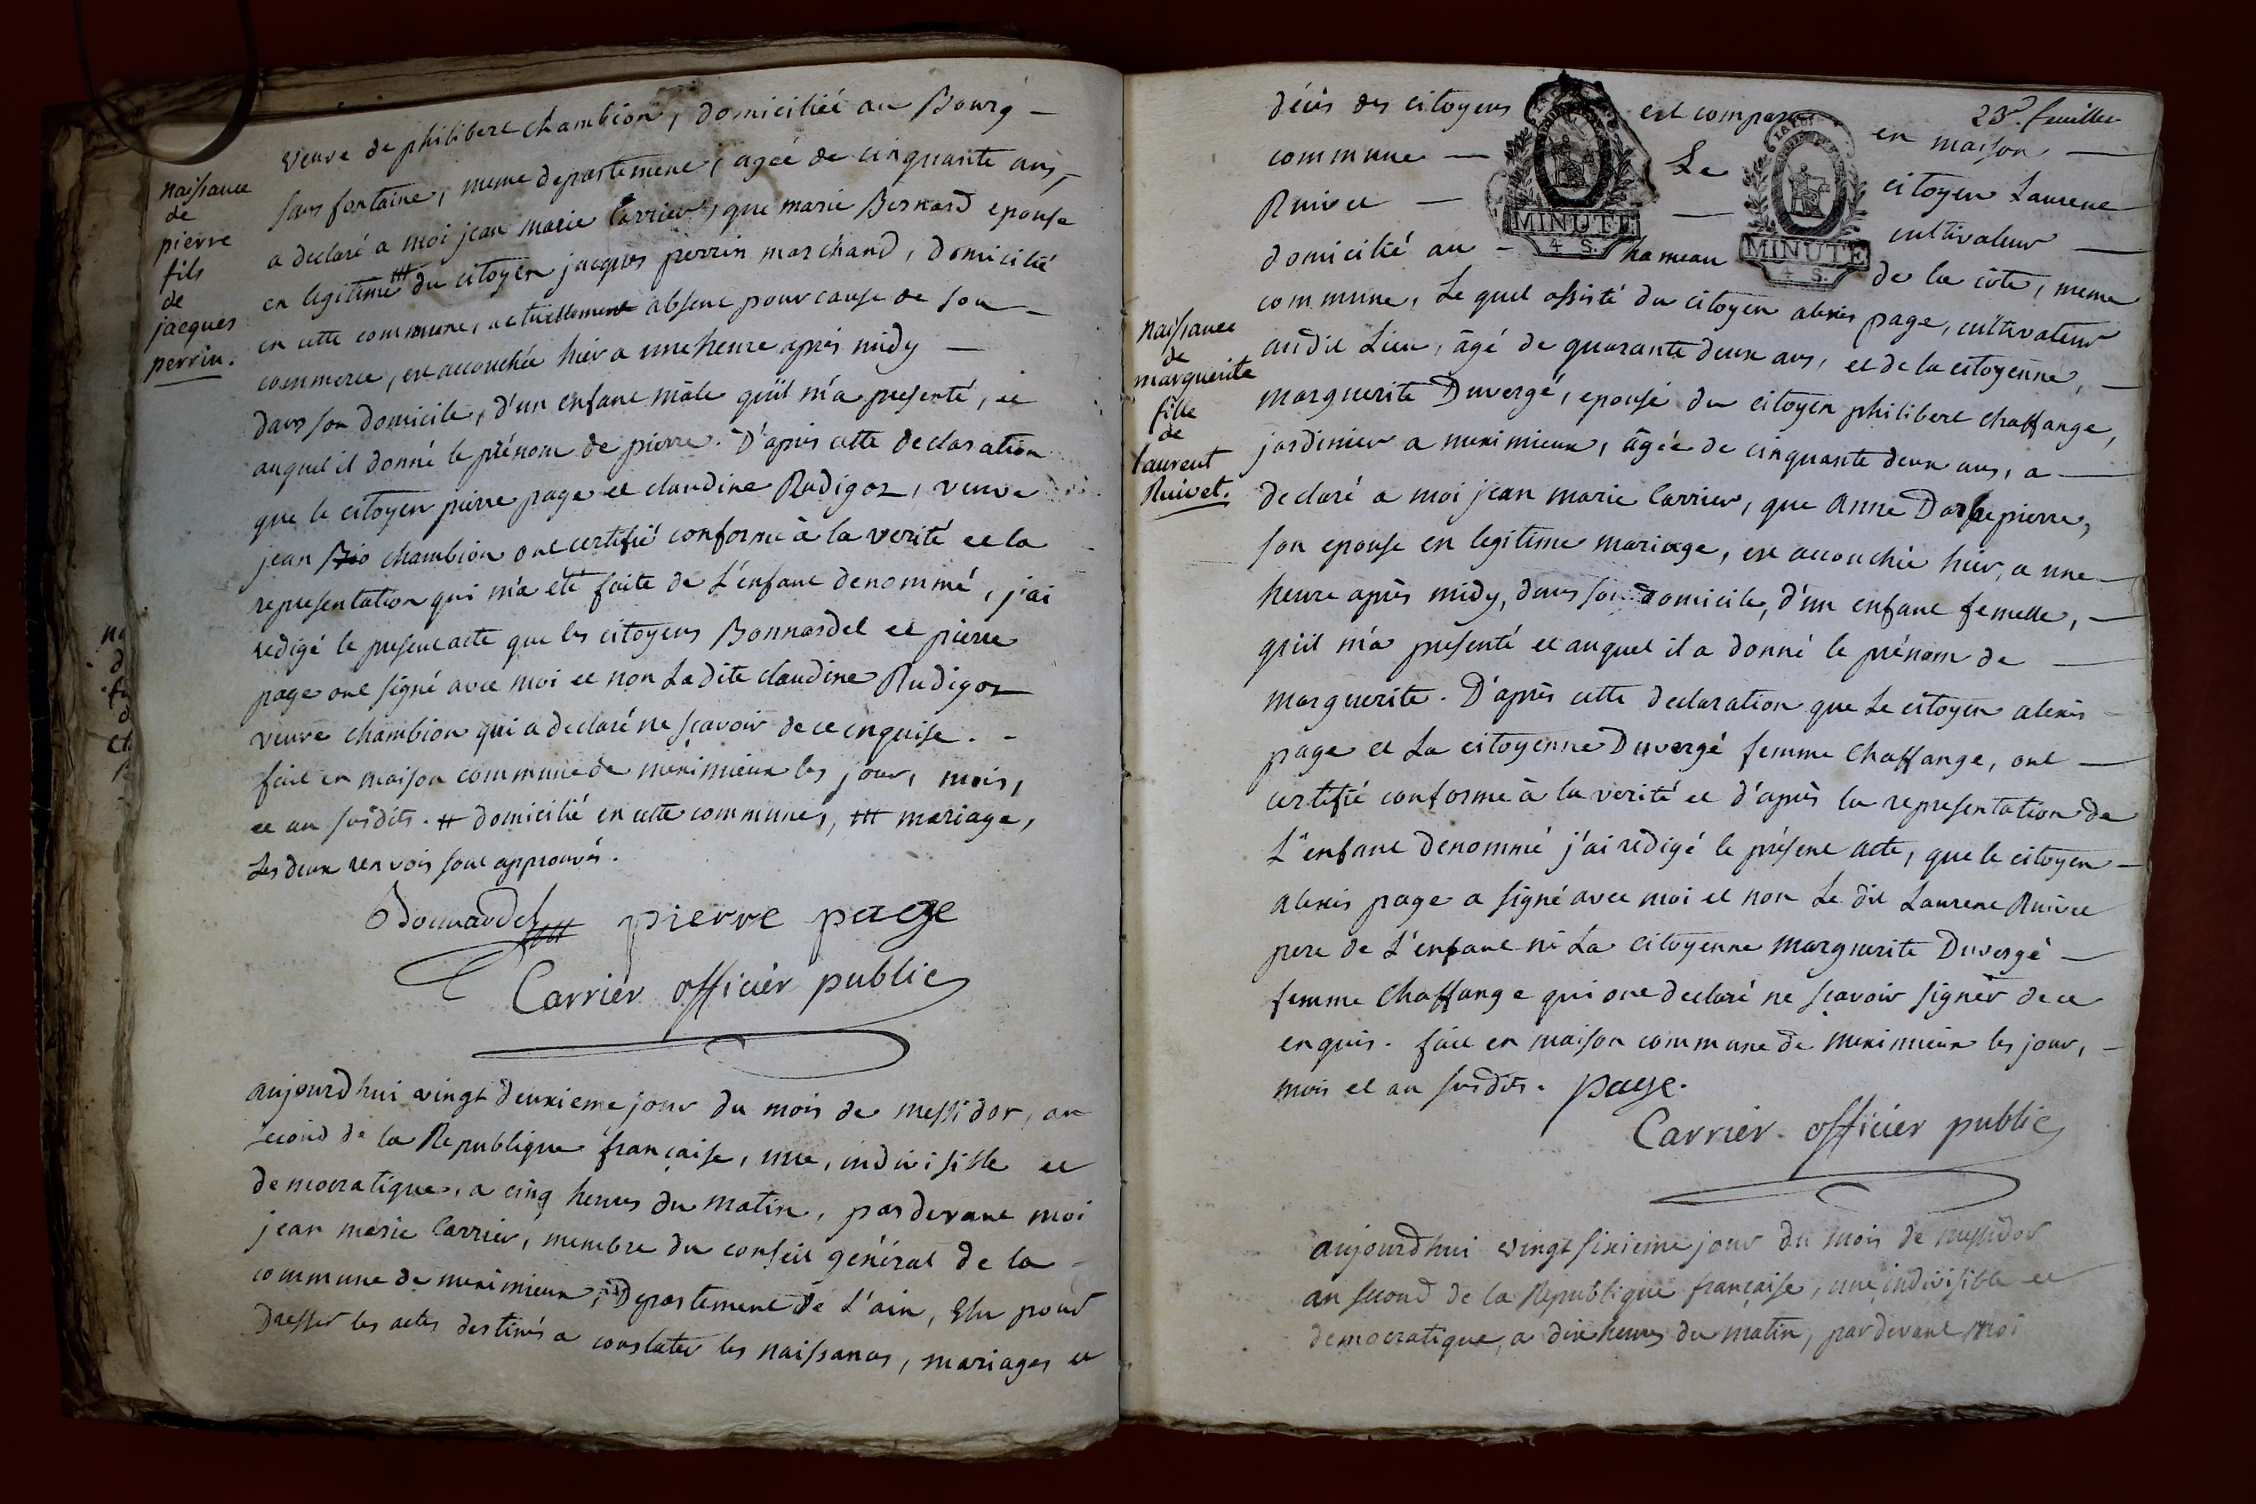 veuve de philibert chambion, domiciliée au Bourg
sans fontaine, meme departement, agée de cinquante ans,
a declaré a moi jean marie Carrier, que marie Bernard epouse
en legitime ## du citoyen jacques perrin marchand, domicilié
en cette commune, actuellement absent pour cause de son
commerce, est accouchée hier a une heure après midy
dans son domicile, d'un enfant mâle qu'il m'a presenté, et
auquel il donné le prénom de pierre. D'après cette declaration
que le citoyen pierre page et claudine Rudigoz, veuve
jean chambion ont certifié conforme à la verité et la
representation qui m'a été faite de L'enfant denommé, j'ai
redigé le present acte que les citoyens Bonnardel et pierre
page ont signé avec moi et non Ladite claudine Rudigoz
veuve chambion qui a declaré ne sçavoir de ce enquise.
fait en maison commune de meximieux les jour, mois,
et an susdits. # domicilié en cette commune, ## mariage,
Les deux renvois sont approuvés.
Bonnardel pierre page
Carrier officier public
naissance
de
pierre
fils
de
jacques
perrin.
aujourdhui vingt deuxieme jour du mois de messidor, an
second de la Republique française, une, indivisible et
democratique, a cinq heures du matin, pardevant moi
jean marie Carrier, membre du conseil général de la
commune de meximieux, Departement de L'ain, Elu pour
Dresser les actes destinés a constater les naissances, mariages et
23e. feuillet
décès des citoyens est comparu en maison
commune Le citoyen Laurent
Ruivet cultivateur
domicilié au hameau de la côte, meme
MINUTE
4 S.
MINUTE
4 S.
commune, Le quel assisté du citoyen alexis page, cultivateur
audit Lieu, âgé de quarante deux ans, et de la citoyenne,
marguerite Duvergé, epouse du citoyen philibert chaffange,
jardinier a meximieux, âgée de cinquante deux ans, a
declaré a moi jean marie Carrier, que Anne Darbepierre,
son epouse en legitime mariage, est accouchée hier, a une
heure après midy, dans son domicile, d'un enfant femelle,
qu'il m'a presenté et auquel il a donné le prénom de
marguerite. D'après cette declaration que Le citoyen alexis
page et La citoyenne Duvergé femme Chaffange, ont
certifié conforme à la verité et d'après la representation de
L'enfant denommé j'ai redigé le présent acte, que le citoyen
alexis page a signé avec moi et non Le dit Laurent Ruivet
pere de L'enfant ni La citoyenne marguerite Duvergé
femme Chaffange qui ont declaré ne sçavoir signer de ce
enquis. fait en maison commune de meximieux les jour,
mois et an susdits. page.
Carrier officier public
naissance
de
marguerite
fille
de
laurent
Ruivet.
aujourdhui vingt sixieme jour du mois de messidor
an second de la Republique française, une, indivisible et
democratique, a dix heures du matin, pardevant moi